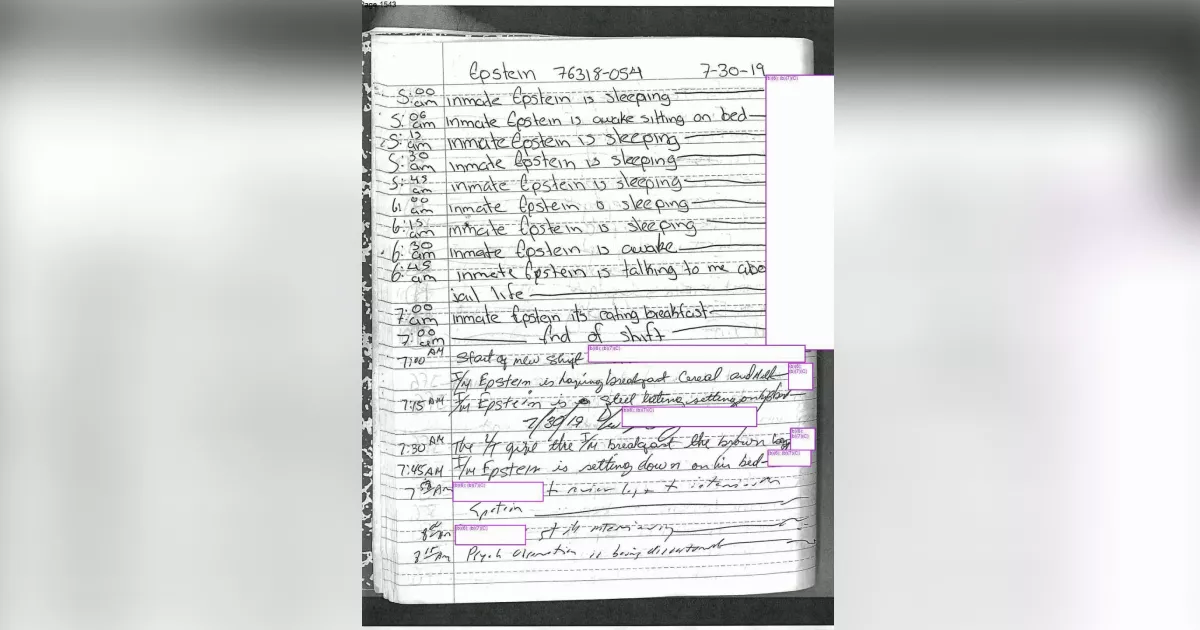 Page 1543
Epstein 76318-054 7-30-19
5:00 am inmate Epstein is sleeping
5:06 am inmate Epstein is awake sitting on bed
5:15 am inmate Epstein is sleeping
5:30 am inmate Epstein is sleeping
5:45 am inmate Epstein is sleeping
6:00 am inmate Epstein is sleeping
6:15 am inmate Epstein is sleeping
6:30 am inmate Epstein is awake
6:45 am inmate Epstein is talking to me abo
jail life
7:00 am inmate Epstein its eating breakfast
7:00 am End of shift
7:00 AM Start of new shift
(b)(6); (b)(7)(C)
I/M Epstein is having breakfast Cereal and Milk
7:15 AM I/M Epstein is setting on
7/30/19
7:30 AM The give the I/M breakfast the brown bag
7:45 AM I/M Epstein is setting down on his bed
AM to review
Epstein
AM
8:15 AM Psych observation is being